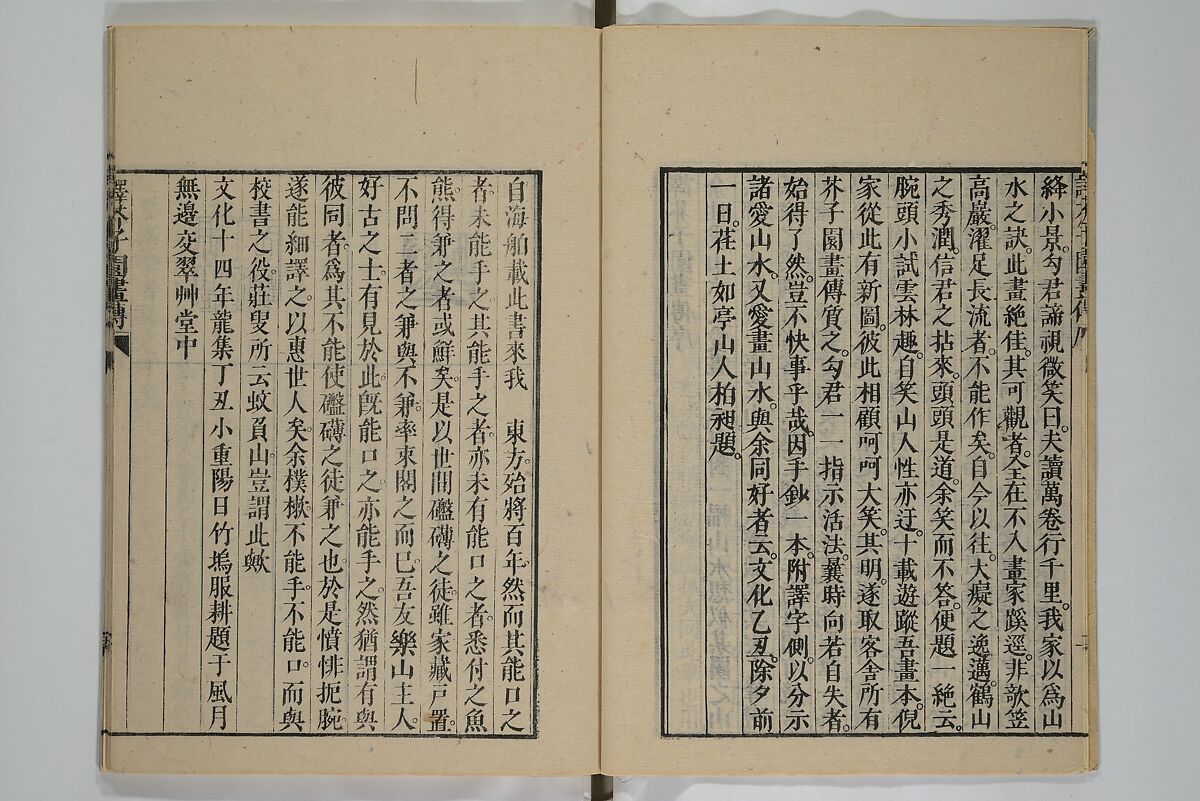 絳小景。勾君諦視微笑曰。夫讀萬卷行千里。我家以爲山
水之訣。此畫絶佳。其可觀者。全在不入畫家蹊逕。非欹笠
高巖。濯足長流者。不能作矣。自今以往。大癡之逸邁。鶴山
之秀潤。信君之拈來。頭頭是道。余笑而不答。便題一絶云。
腕頭小試雲林趣。自笑山人性亦迂。十載遊蹤吾畫本。倪
家從此有新圖。彼此相顧呵呵大笑。其明。遂取客舎所有
芥子園畫傳質之。勾君一一指示活法。曩時向若自失者。
始得了然。豈不快事乎哉。因手鈔一本。附譯字側。以分示
諸愛山水。又愛畫山水。與余同好者云。文化乙丑。除夕前
一日。荏土如亭山人柏昶題。
自海舶載此書來我　東方。殆將百年。然而其能口之
者。未能手之。其能手之者。亦未有能口之者。悉付之魚
熊。得兼之者或鮮矣。是以世間礛礴之徒。雖家藏戸置。
不問二者之兼與不兼。率束閣之而已。吾友樂山主人。
好古之士。有見於此。既能口之。亦能手之。然猶謂有與
彼同者。爲其不能使礛礴之徒兼之也。於是憤悱扼腕。
遂能細譯之。以惠世人矣。余樸樕。不能手。不能口。而與
校書之役。莊叟所云蚊負山。豈謂此歟
文化十四年龍集丁丑小重陽日竹塢服耕題于風月
無邊交翠艸堂中
譯芥子園畫傳